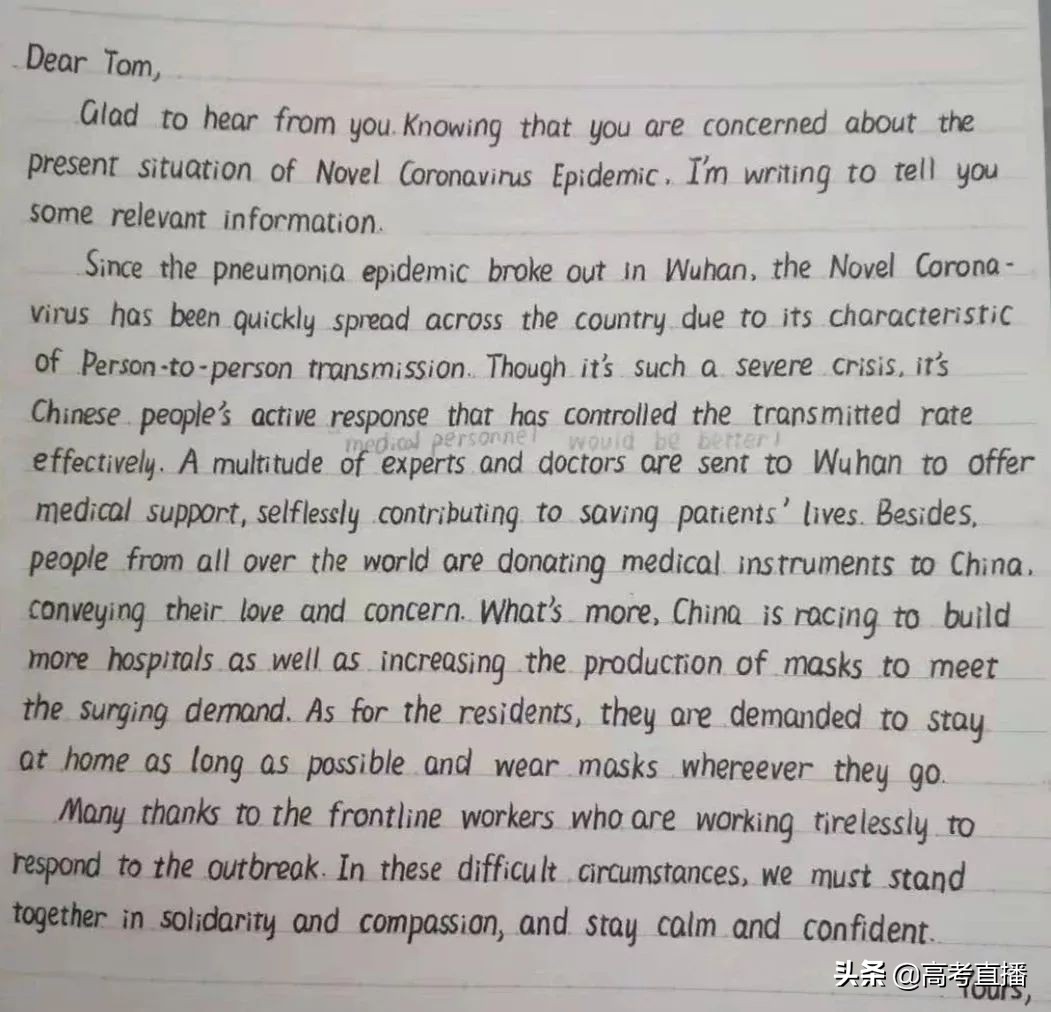 Dear Tom,
Glad to hear from you. Knowing that you are concerned about the
present situation of Novel Coronavirus Epidemic. I'm writing to tell you
some relevant information.
Since the pneumonia epidemic broke out in Wuhan, the Novel Corona-
virus has been quickly spread across the country due to its characteristic
of Person-to-person transmission. Though it's such a severe crisis, it's
Chinese people's active response that has controlled the transmitted rate
medical personnel would be better!
effectively. A multitude of experts and doctors are sent to Wuhan to offer
medical support, selflessly contributing to saving patients' lives. Besides,
people from all over the world are donating medical instruments to China,
conveying their love and concern. What's more, China is racing to build
more hospitals as well as increasing the production of masks to meet
the surging demand. As for the residents, they are demanded to stay
at home as long as possible and wear masks whereever they go.
Many thanks to the frontline workers who are working tirelessly to
respond to the outbreak. In these difficult circumstances, we must stand
together in solidarity and compassion, and stay calm and confident.
头条 @高考直播
Yours,